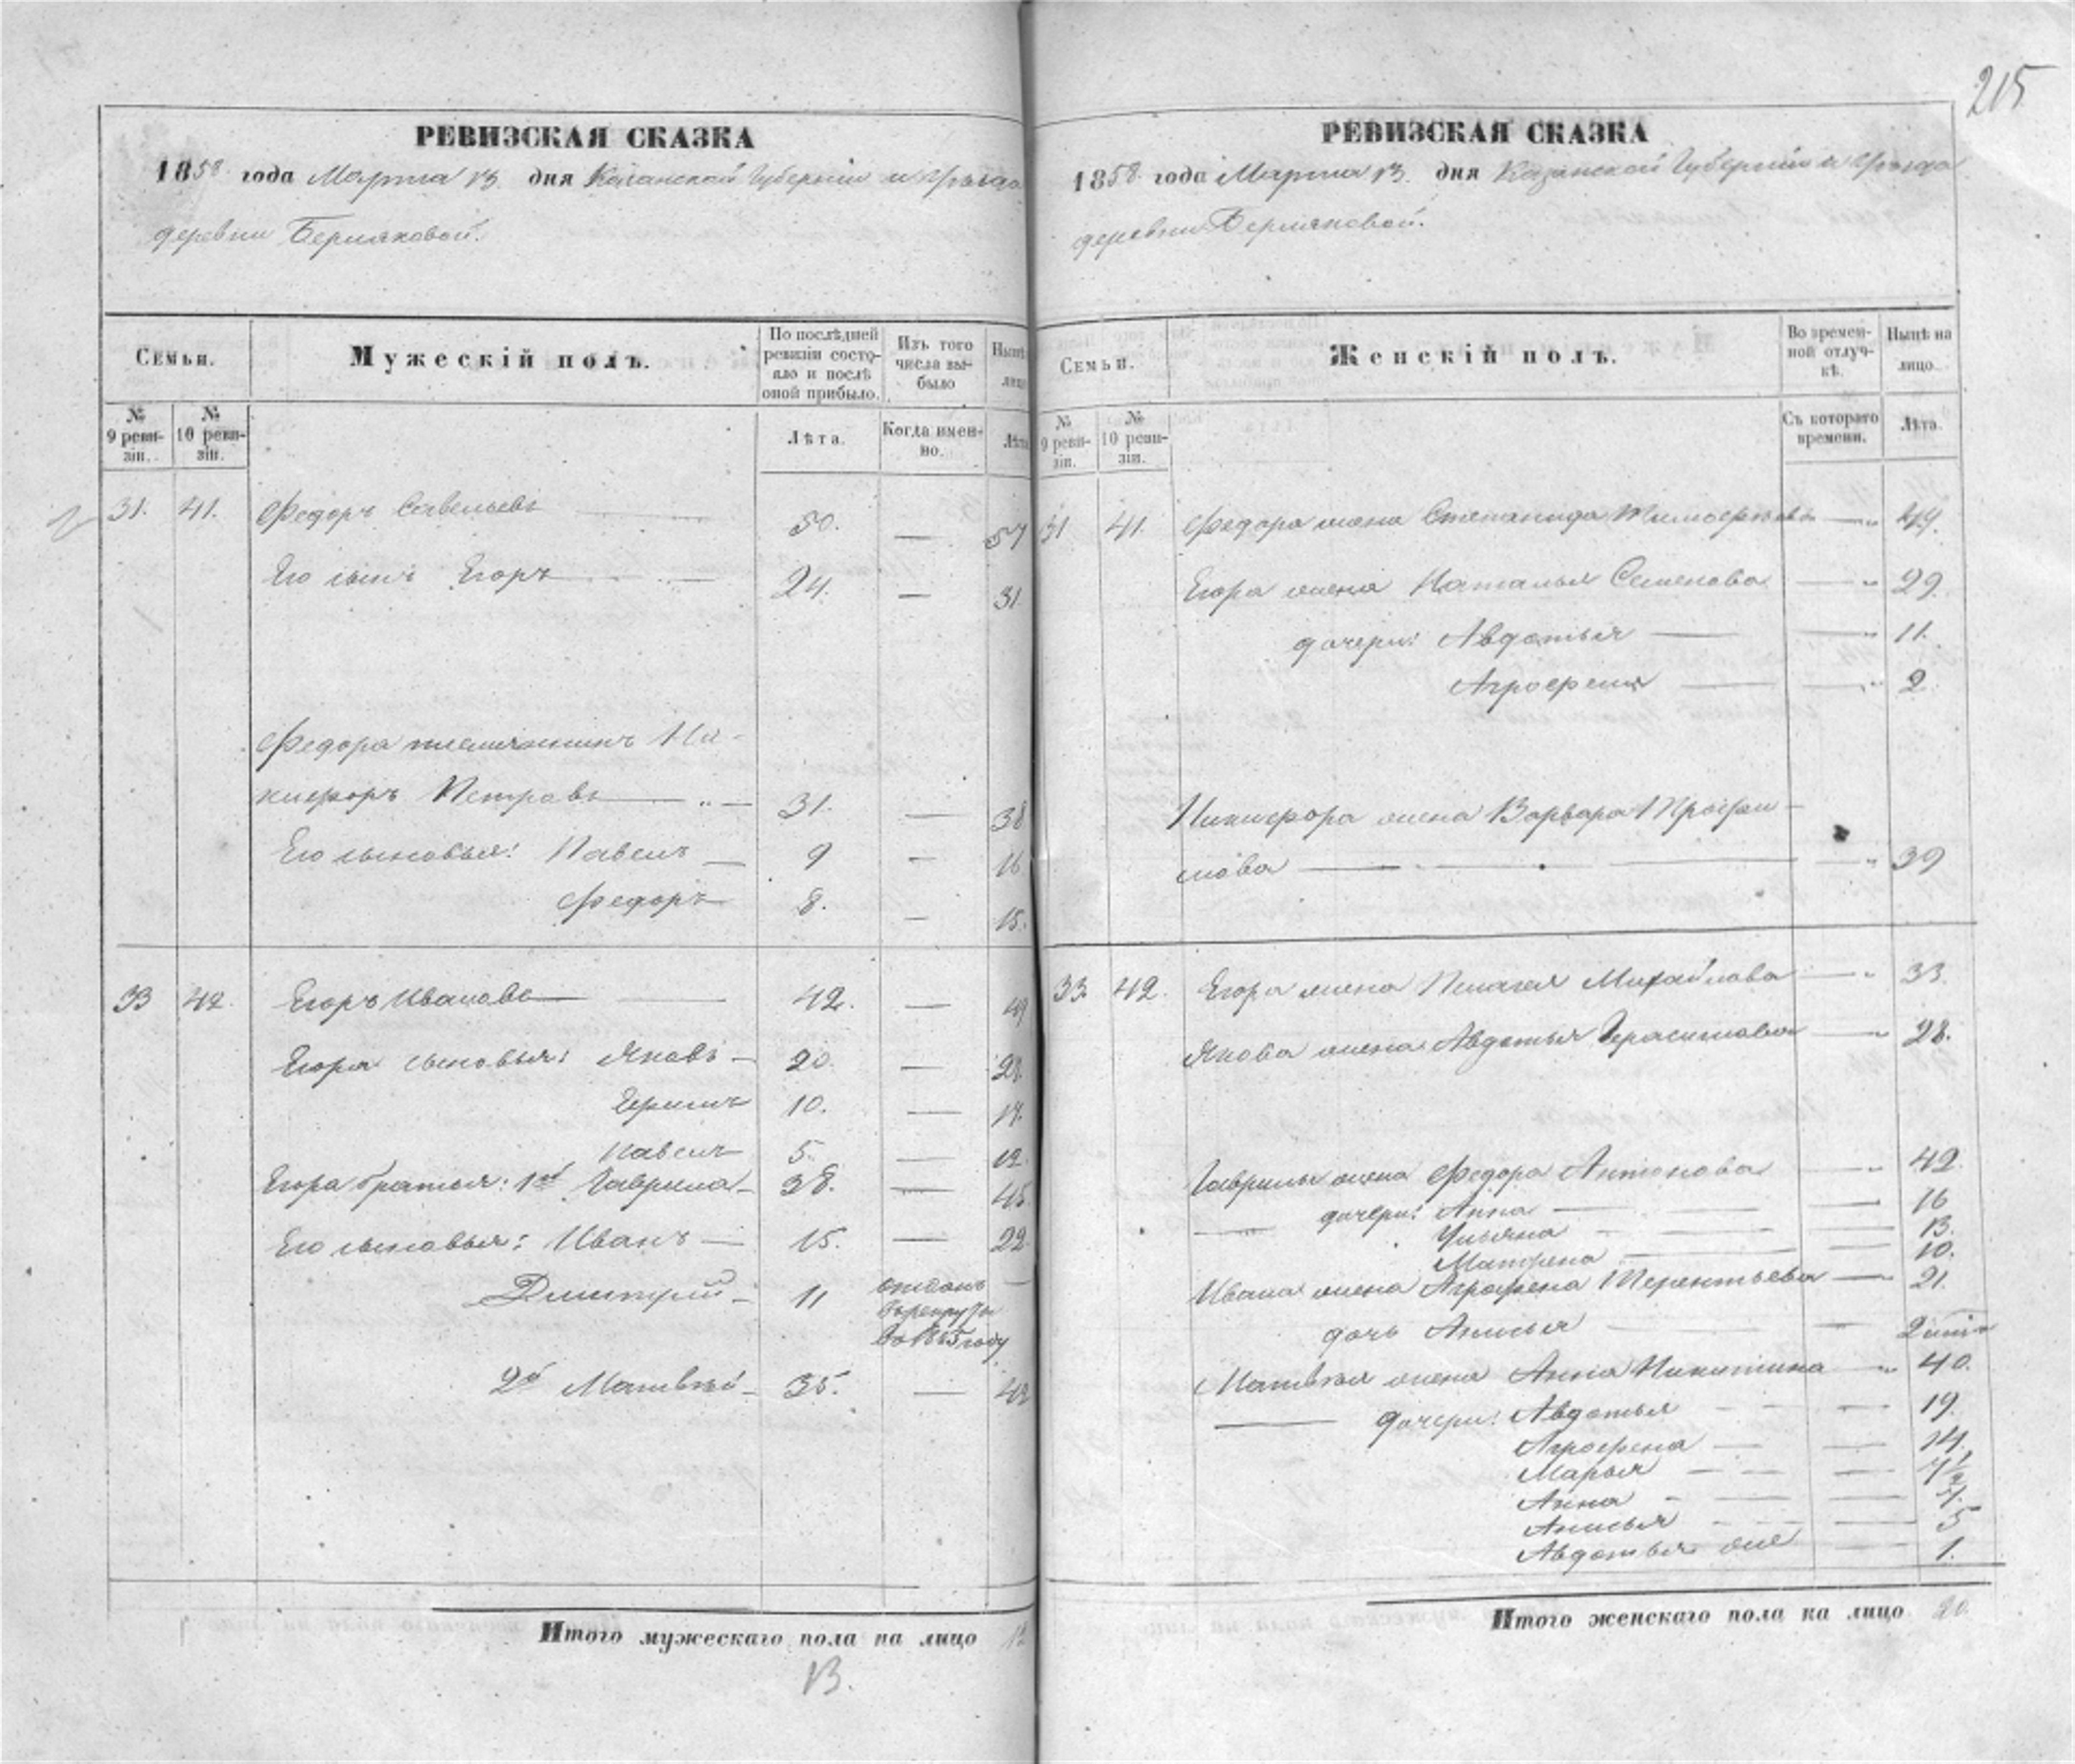 215
РЕВИЗСКАЯ СКАЗКА
1858 года Марта 13 дня Казанской Губерніи и Уѣзда
деревни Бермяковой.
Семьи.
Мужескій полъ.
По послѣдней ревизіи состояло и послѣ оной прибыло.
Изъ того числа выбыло
Нынѣ лицо
№ 9 ревизіи.
№ 10 ревизіи.
Лѣта.
Когда именно.
Лѣта
31. 41. Федоръ Савельевъ 50. — 57
Его сынъ Егоръ 24. — 31
Федора племянникъ Ни-
кифоръ Петровъ 31. — 38
Его сыновья: Павелъ 9 — 16
Федоръ 8. — 15.
33 42. Егоръ Ивановъ 42. — 49
Егора сыновья: Яковъ 20. — 27.
10. — 17.
Павелъ 5. — 12.
Егора братья: 1й Гаврила 38. — 45
Его сыновья: Иванъ 15. — 22.
Дмитрій 11 отданъ —
въ рекруты
въ 1855 году
2й Матвѣй 35. — 42
Итого мужескаго пола на лицо 12
13.
РЕВИЗСКАЯ СКАЗКА
1858 года Марта 13. дня Казанской Губерніи и Уѣзда
деревни Бермяковой.
Семьи.
Женскій полъ.
Во временной отлучкѣ.
Нынѣ на лицо.
№ 9 ревизіи.
№ 10 ревизіи.
Съ котораго времени.
Лѣта.
31 41. Федора жена Степанида Тимофѣева — 44.
Егора жена Наталья Семенова — 29.
дочери: Авдотья — 11.
Агрофена — 2.
Никифора жена Варвара Трофи-
мова — 39
33 42. Егора жена Пелагея Михайлова — 33.
Якова жена Авдотья Герасимова — 28.
Гаврилы жена Федора Антонова — 42.
дочери: Анна — 16
Ульяна — 13.
Матрена — 10.
Ивана жена Аграфена Терентьева — 21.
дочь Анисья —
Матвѣя жена Анна Никитина — 40.
дочери: Авдотья — 19.
Агрофена — 14.
Марья —
Анна —
Анисья — 5
Авдотья же — 1.
Итого женскаго пола на лицо 20.